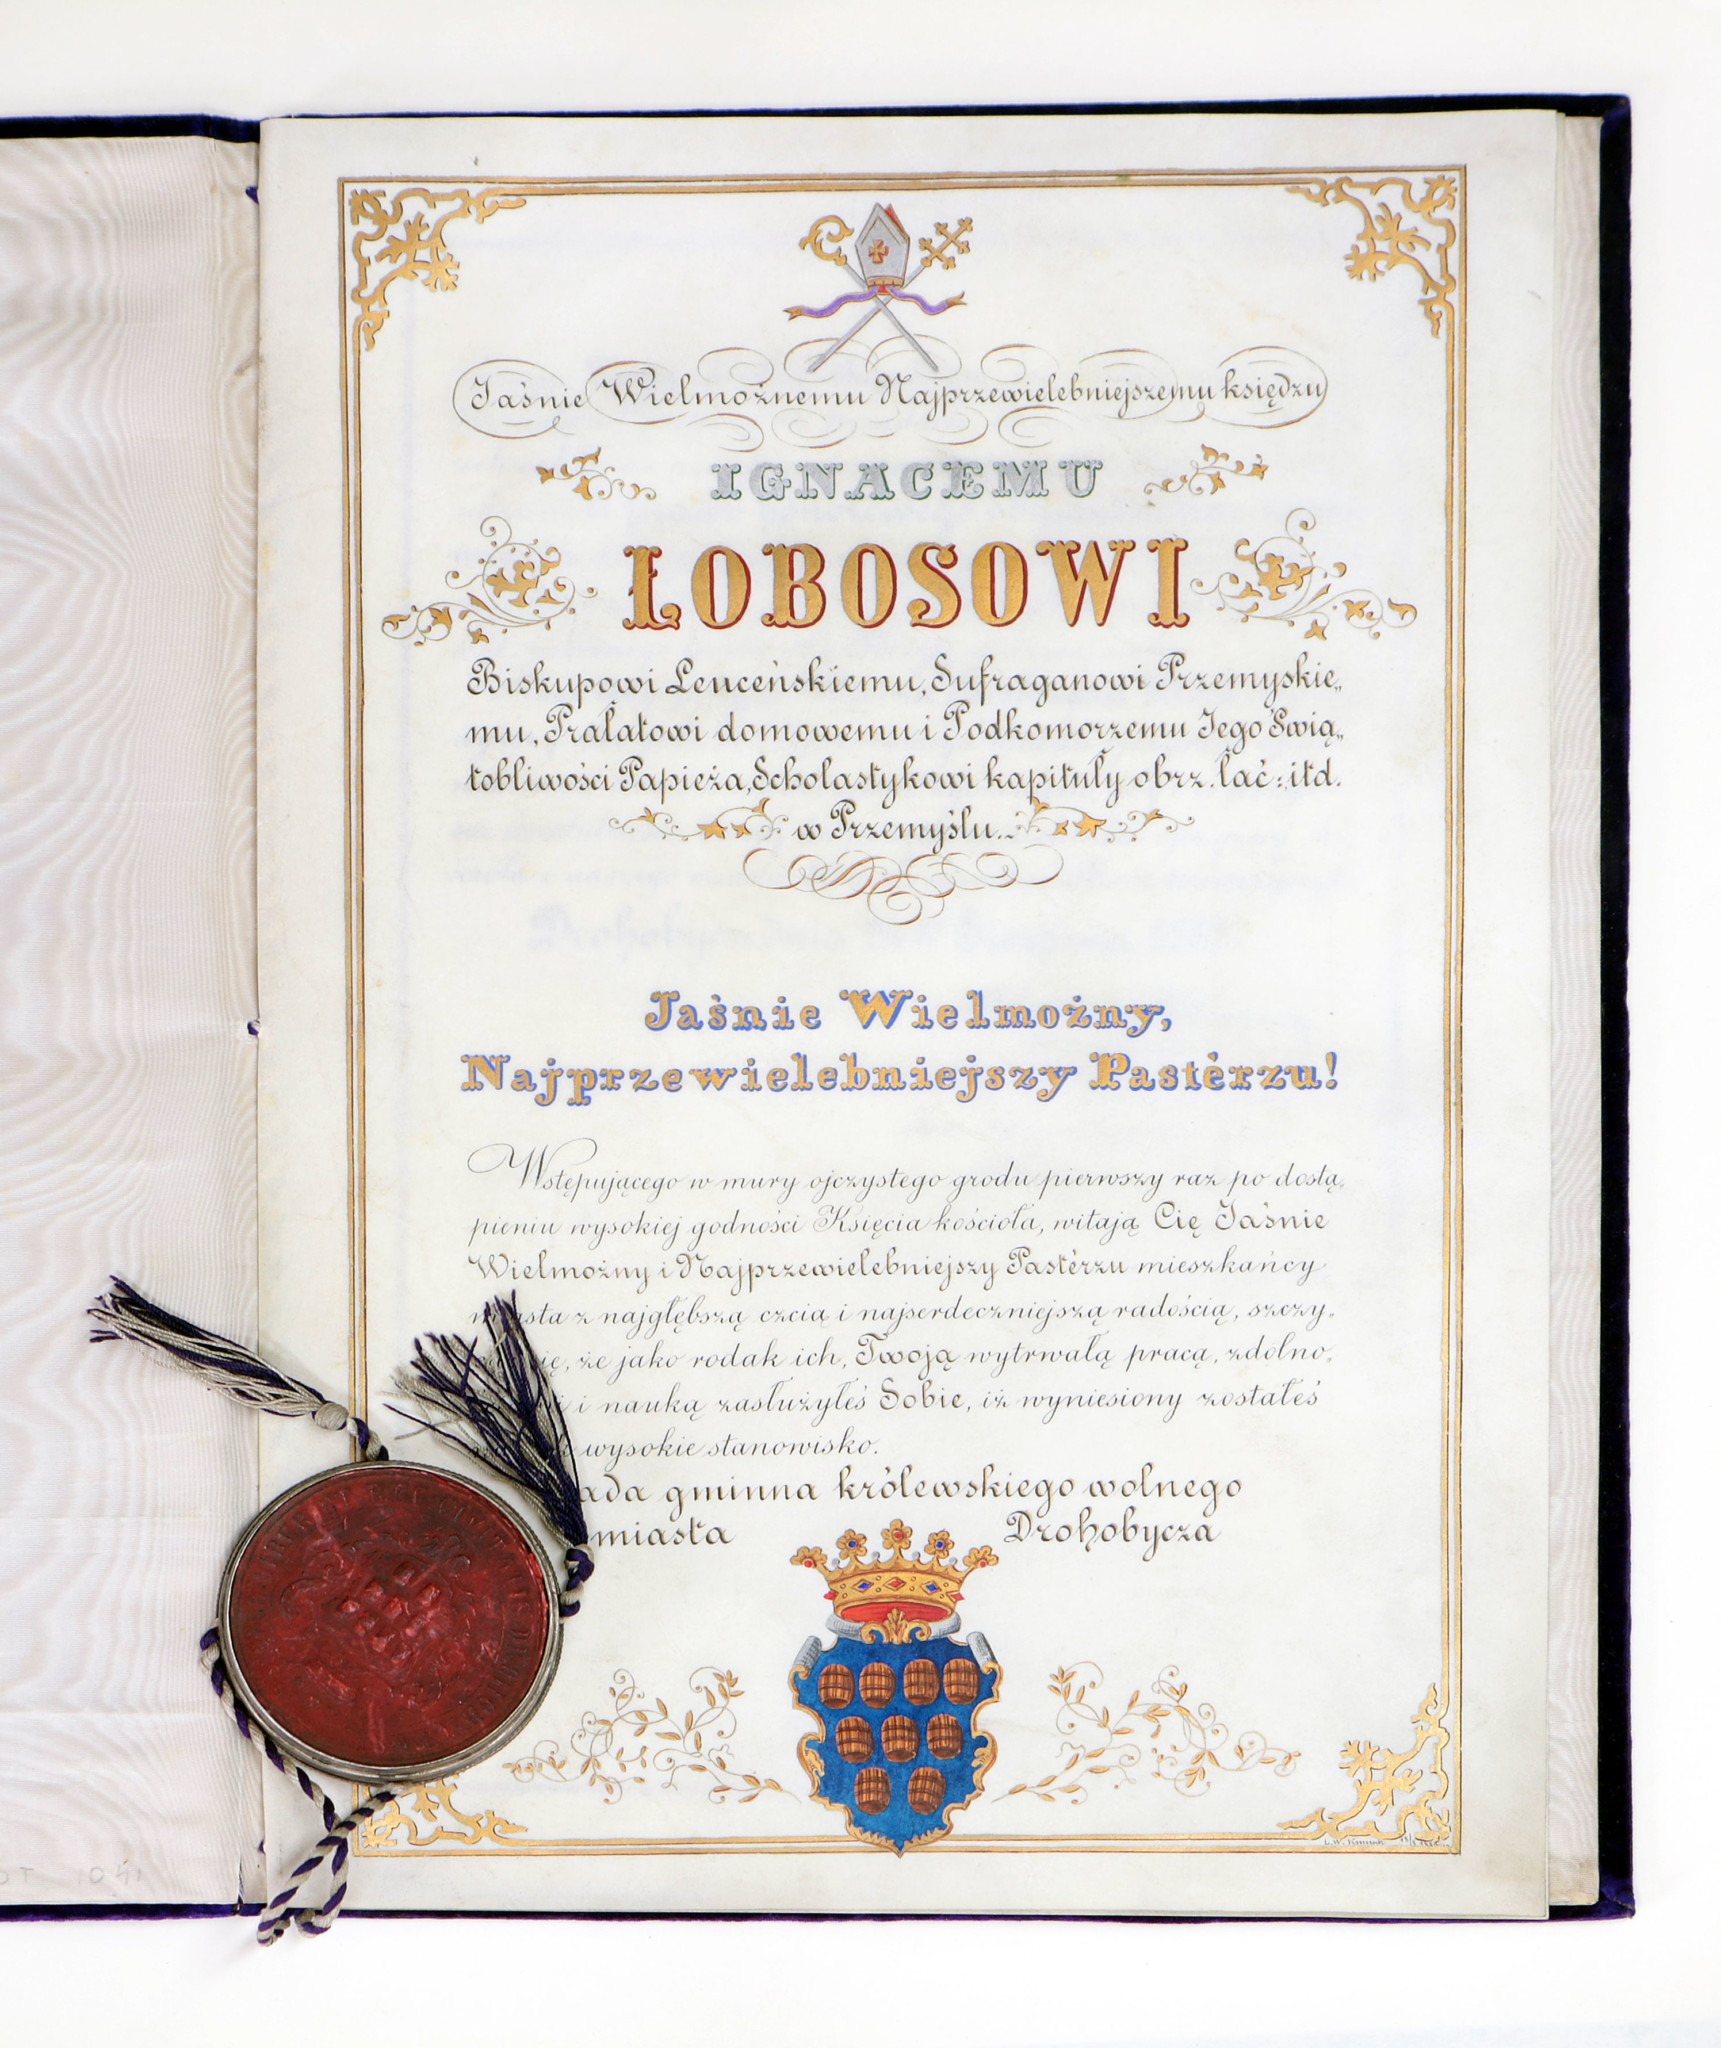 Jaśnie Wielmożnemu Najprzewielebniejszemu księdzu
IGNACEMU
ŁOBOSOWI
Biskupowi Leuceńskiemu, Sufraganowi Przemyskie„
mu, Prałatowi domowemu i Podkomorzemu Jego Swią„
tobliwości Papieża, Scholastykowi kapituły obrz. łać: itd.
w Przemyślu.
Jaśnie Wielmożny,
Najprzewielebniejszy Pastérzu!
Wstępującego w mury ojczystego grodu pierwszy raz po dostą„
pieniu wysokiej godności Księcia kościoła, witają Cię Jaśnie
Wielmożny i Najprzewielebniejszy Pastérzu mieszkańcy
miasta z najgłębszą czcią i najserdeczniejszą radością, szczy„
się, że jako rodak ich, Twoją wytrwałą pracą, zdolno„
i nauką zasłużyłeś Sobie, iż wyniesiony zostałeś
wysokie stanowisko.
ada gminna królewskiego wolnego
miasta Drohobycza